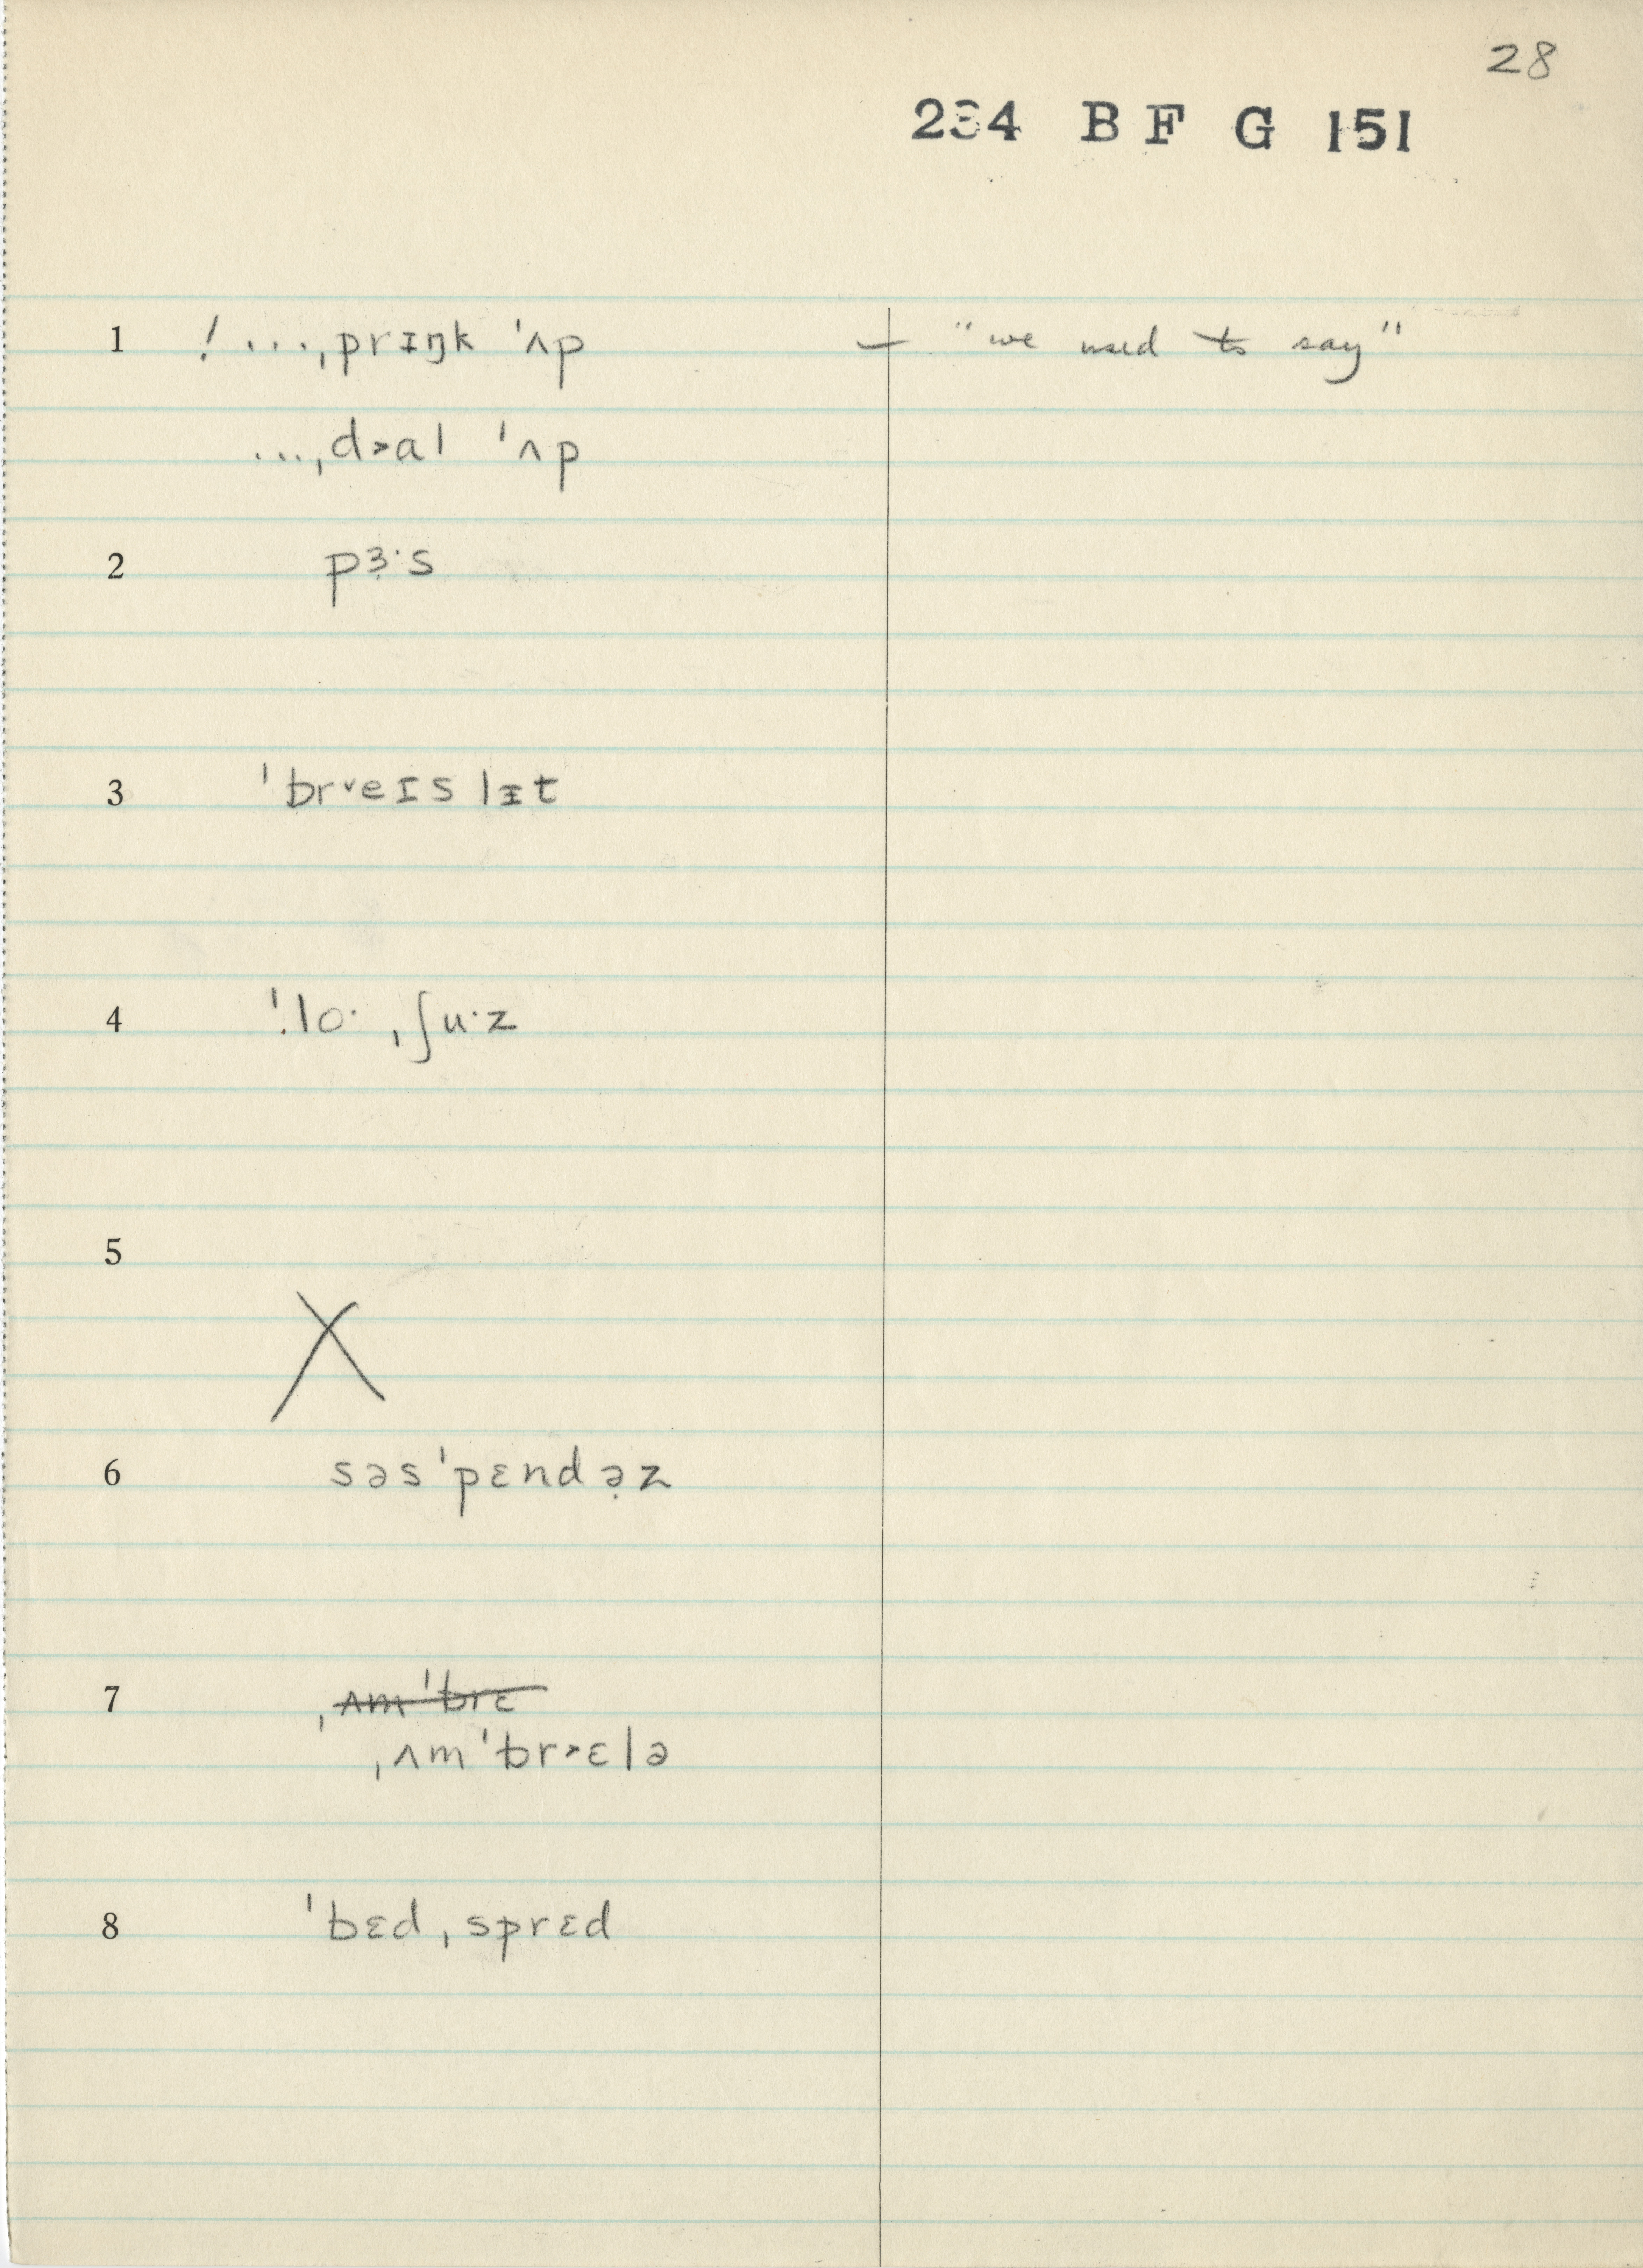 28
234 B F G 151
1 ! ...ˌprɪŋk ˈʌp — "we used to say"
...ˌd˃al ˈʌp
2 pɜ̣·s
3 ˈbr˅eɪslᵻt
4 ˈ.lo· ˌʃu·z
5
X
6 səsˈpɛndə̣z
7 ˌʌmˈbrɛ
ˌʌmˈbr˃ɛlə
8 ˈbɛdˌsprɛd